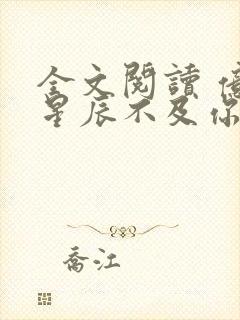 全文閱讀 億
星辰不及你
喬江